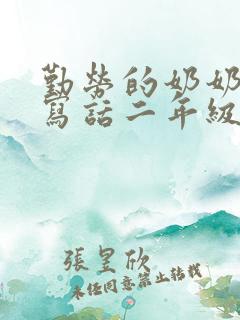 勤勞的奶奶
寫話二年級
張昱欣
未經同意禁止轉載